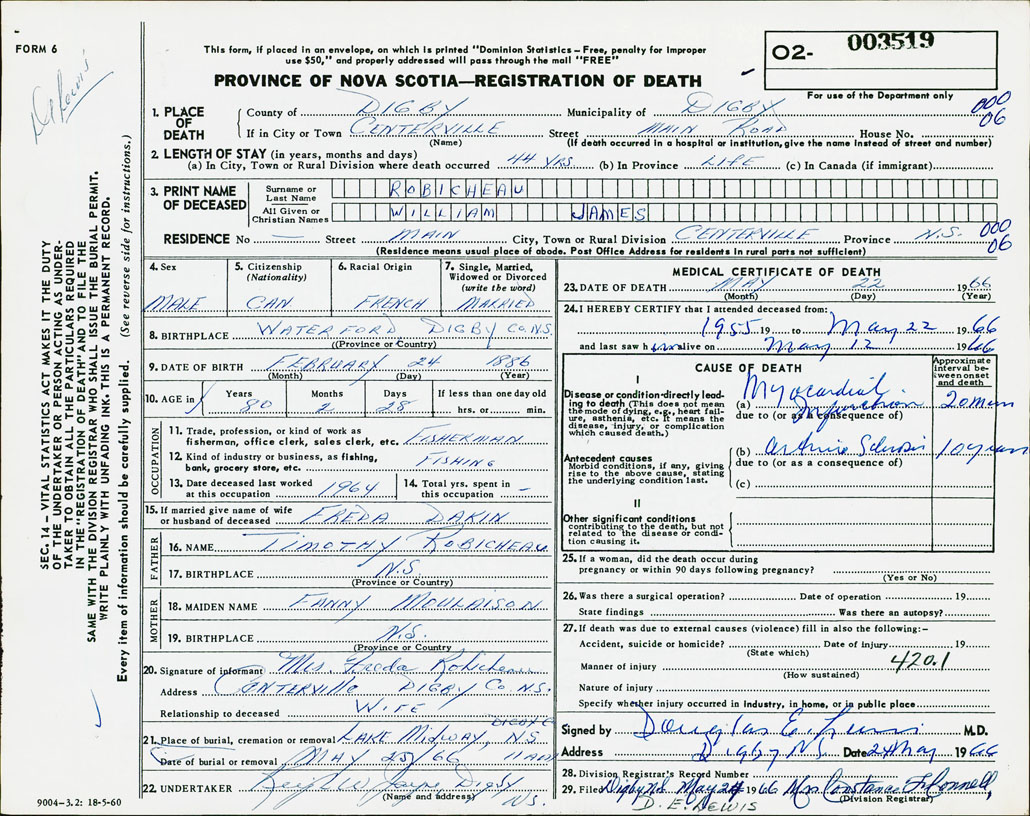 FORM 6
This form, if placed in an envelope, on which is printed "Dominion Statistics – Free, penalty for improper
use $50," and properly addressed will pass through the mail "FREE"
PROVINCE OF NOVA SCOTIA—REGISTRATION OF DEATH
O2- 003519
For use of the Department only
D E Lewis
SEC. 14 – VITAL STATISTICS ACT MAKES IT THE DUTY
OF THE UNDERTAKER OR PERSON ACTING AS UNDER-
TAKER TO OBTAIN ALL THE PARTICULARS REQUIRED
IN THE "REGISTRATION OF DEATH" AND TO FILE THE
SAME WITH THE DIVISION REGISTRAR WHO SHALL ISSUE THE BURIAL PERMIT.
WRITE PLAINLY WITH UNFADING INK. THIS IS A PERMANENT RECORD.
Every item of information should be carefully supplied. (See reverse side for instructions.)
1. PLACE OF DEATH County of DIGBY Municipality of DIGBY 000 06
If in City or Town CENTERVILLE Street MAIN ROAD House No.
(Name) (If death occurred in a hospital or institution, give the name instead of street and number)
2. LENGTH OF STAY (in years, months and days)
(a) In City, Town or Rural Division where death occurred 44 YRS. (b) In Province LIFE (c) In Canada (if immigrant)
3. PRINT NAME OF DECEASED Surname or Last Name ROBICHEAU
All Given or Christian Names WILLIAM JAMES
RESIDENCE No — Street MAIN City, Town or Rural Division CENTERVILLE Province N.S. 000 06
(Residence means usual place of abode. Post Office Address for residents in rural parts not sufficient)
4. Sex MALE
5. Citizenship (Nationality) CAN
6. Racial Origin FRENCH
7. Single, Married, Widowed or Divorced (write the word) MARRIED
8. BIRTHPLACE WATERFORD DIGBY CO. N.S.
(Province or Country)
9. DATE OF BIRTH FEBRUARY 24 1886
(Month) (Day) (Year)
10. AGE in Years 80 Months 2 Days 28 If less than one day old hrs. or min.
OCCUPATION
11. Trade, profession, or kind of work as
fisherman, office clerk, sales clerk, etc. FISHERMAN
12. Kind of industry or business, as fishing,
bank, grocery store, etc. FISHING
13. Date deceased last worked
at this occupation 1964
14. Total yrs. spent in
this occupation –
15. If married give name of wife
or husband of deceased FREDA DAKIN
FATHER
16. NAME TIMOTHY ROBICHEAU
17. BIRTHPLACE N.S.
(Province or Country)
MOTHER
18. MAIDEN NAME FANNY MOULAISON
19. BIRTHPLACE N.S.
(Province or Country)
20. Signature of informant Mrs. Freda Robicheau
Address CENTERVILLE DIGBY CO. N.S.
Relationship to deceased WIFE
21. Place of burial, cremation or removal LAKE MIDWAY, DIGBY C NS
Date of burial or removal MAY 25/66 11 AM
22. UNDERTAKER Digby NS.
(Name and address)
9004-3.2: 18-5-60
MEDICAL CERTIFICATE OF DEATH
23. DATE OF DEATH MAY 22 1966
(Month) (Day) (Year)
24. I HEREBY CERTIFY that I attended deceased from:
1955 19 to May 22 1966
and last saw him alive on May 12 1966
CAUSE OF DEATH
Approximate interval between onset and death
I
Disease or condition directly lead-
ing to death (This does not mean
the mode of dying, e.g., heart fail-
ure, asthenia, etc. It means the
disease, injury, or complication
which caused death.)
(a) Myocardial Infarction 20 mins
due to (or as a consequence of)
Antecedent causes
Morbid conditions, if any, giving
rise to the above cause, stating
the underlying condition last.
(b) 10 years
due to (or as a consequence of)
(c)
II
Other significant conditions
contributing to the death, but not
related to the disease or condi-
tion causing it.
25. If a woman, did the death occur during
pregnancy or within 90 days following pregnancy?
(Yes or No)
26. Was there a surgical operation? Date of operation 19
State findings Was there an autopsy?
27. If death was due to external causes (violence) fill in also the following:–
Accident, suicide or homicide? Date of injury 19
(State which)
Manner of injury 420.1
(How sustained)
Nature of injury
Specify whether injury occurred in industry, in home, or in public place
Signed by Douglas E. Lewis M.D.
Address Digby N.S. Date 24 May 1966
28. Division Registrar's Record Number
29. Filed Digby N.S. May 24 1966 Mrs Constance
D. E. LEWIS (Division Registrar)